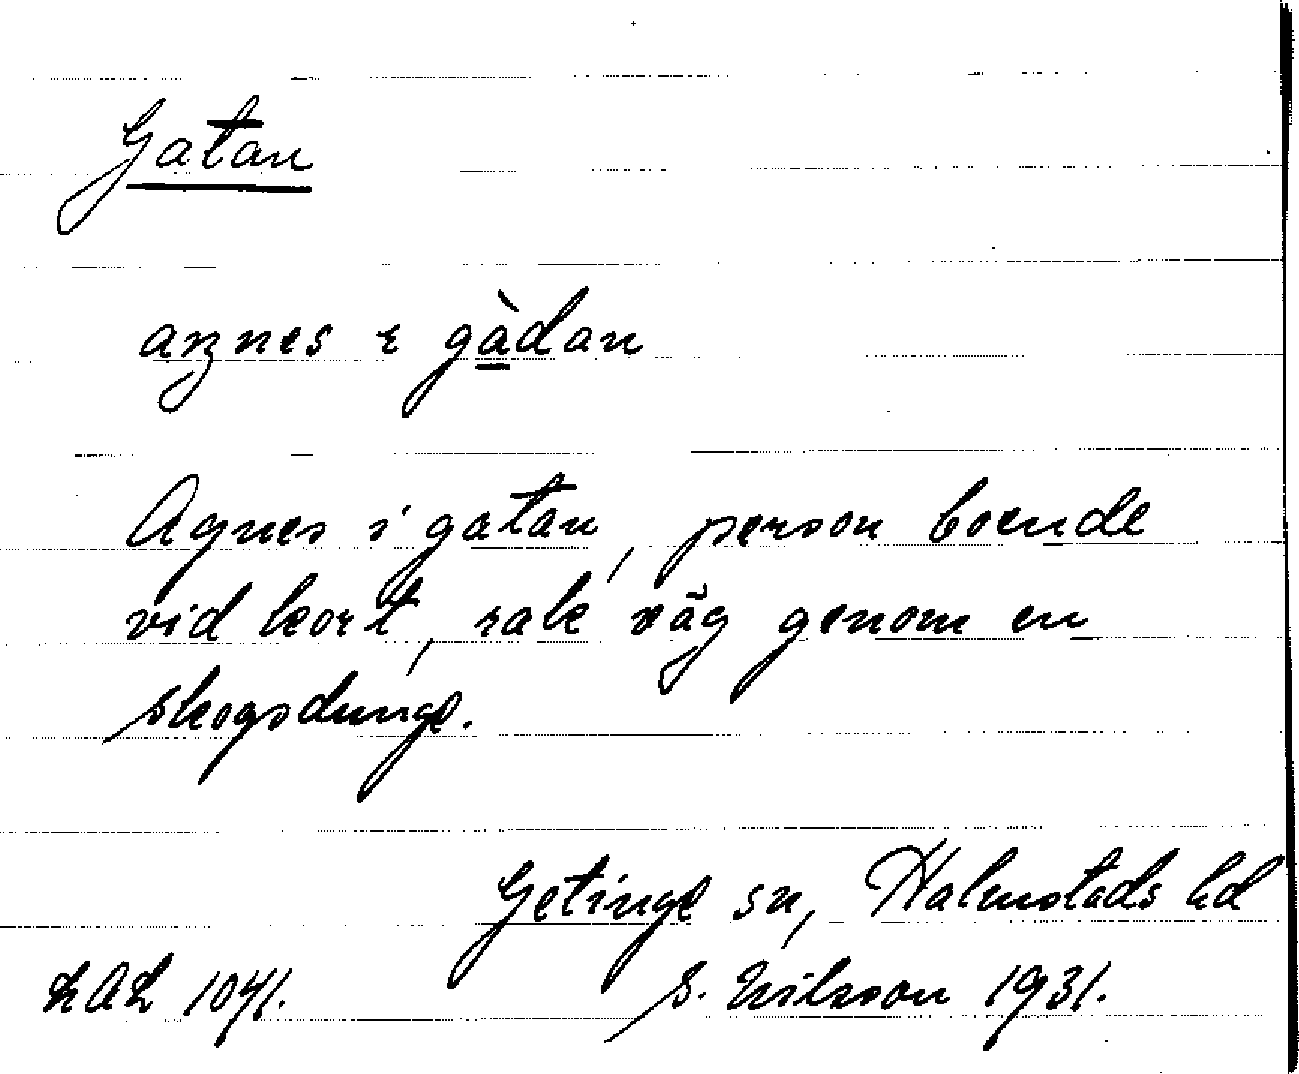 Gatan
aŋnes ɩ gàdan
Agnes i gatan, person boende
vid kort, rak väg genom en
skogsdunge.
Getinge sn, Halmstads hd
LAL 1041. S. Nilsson 1931.